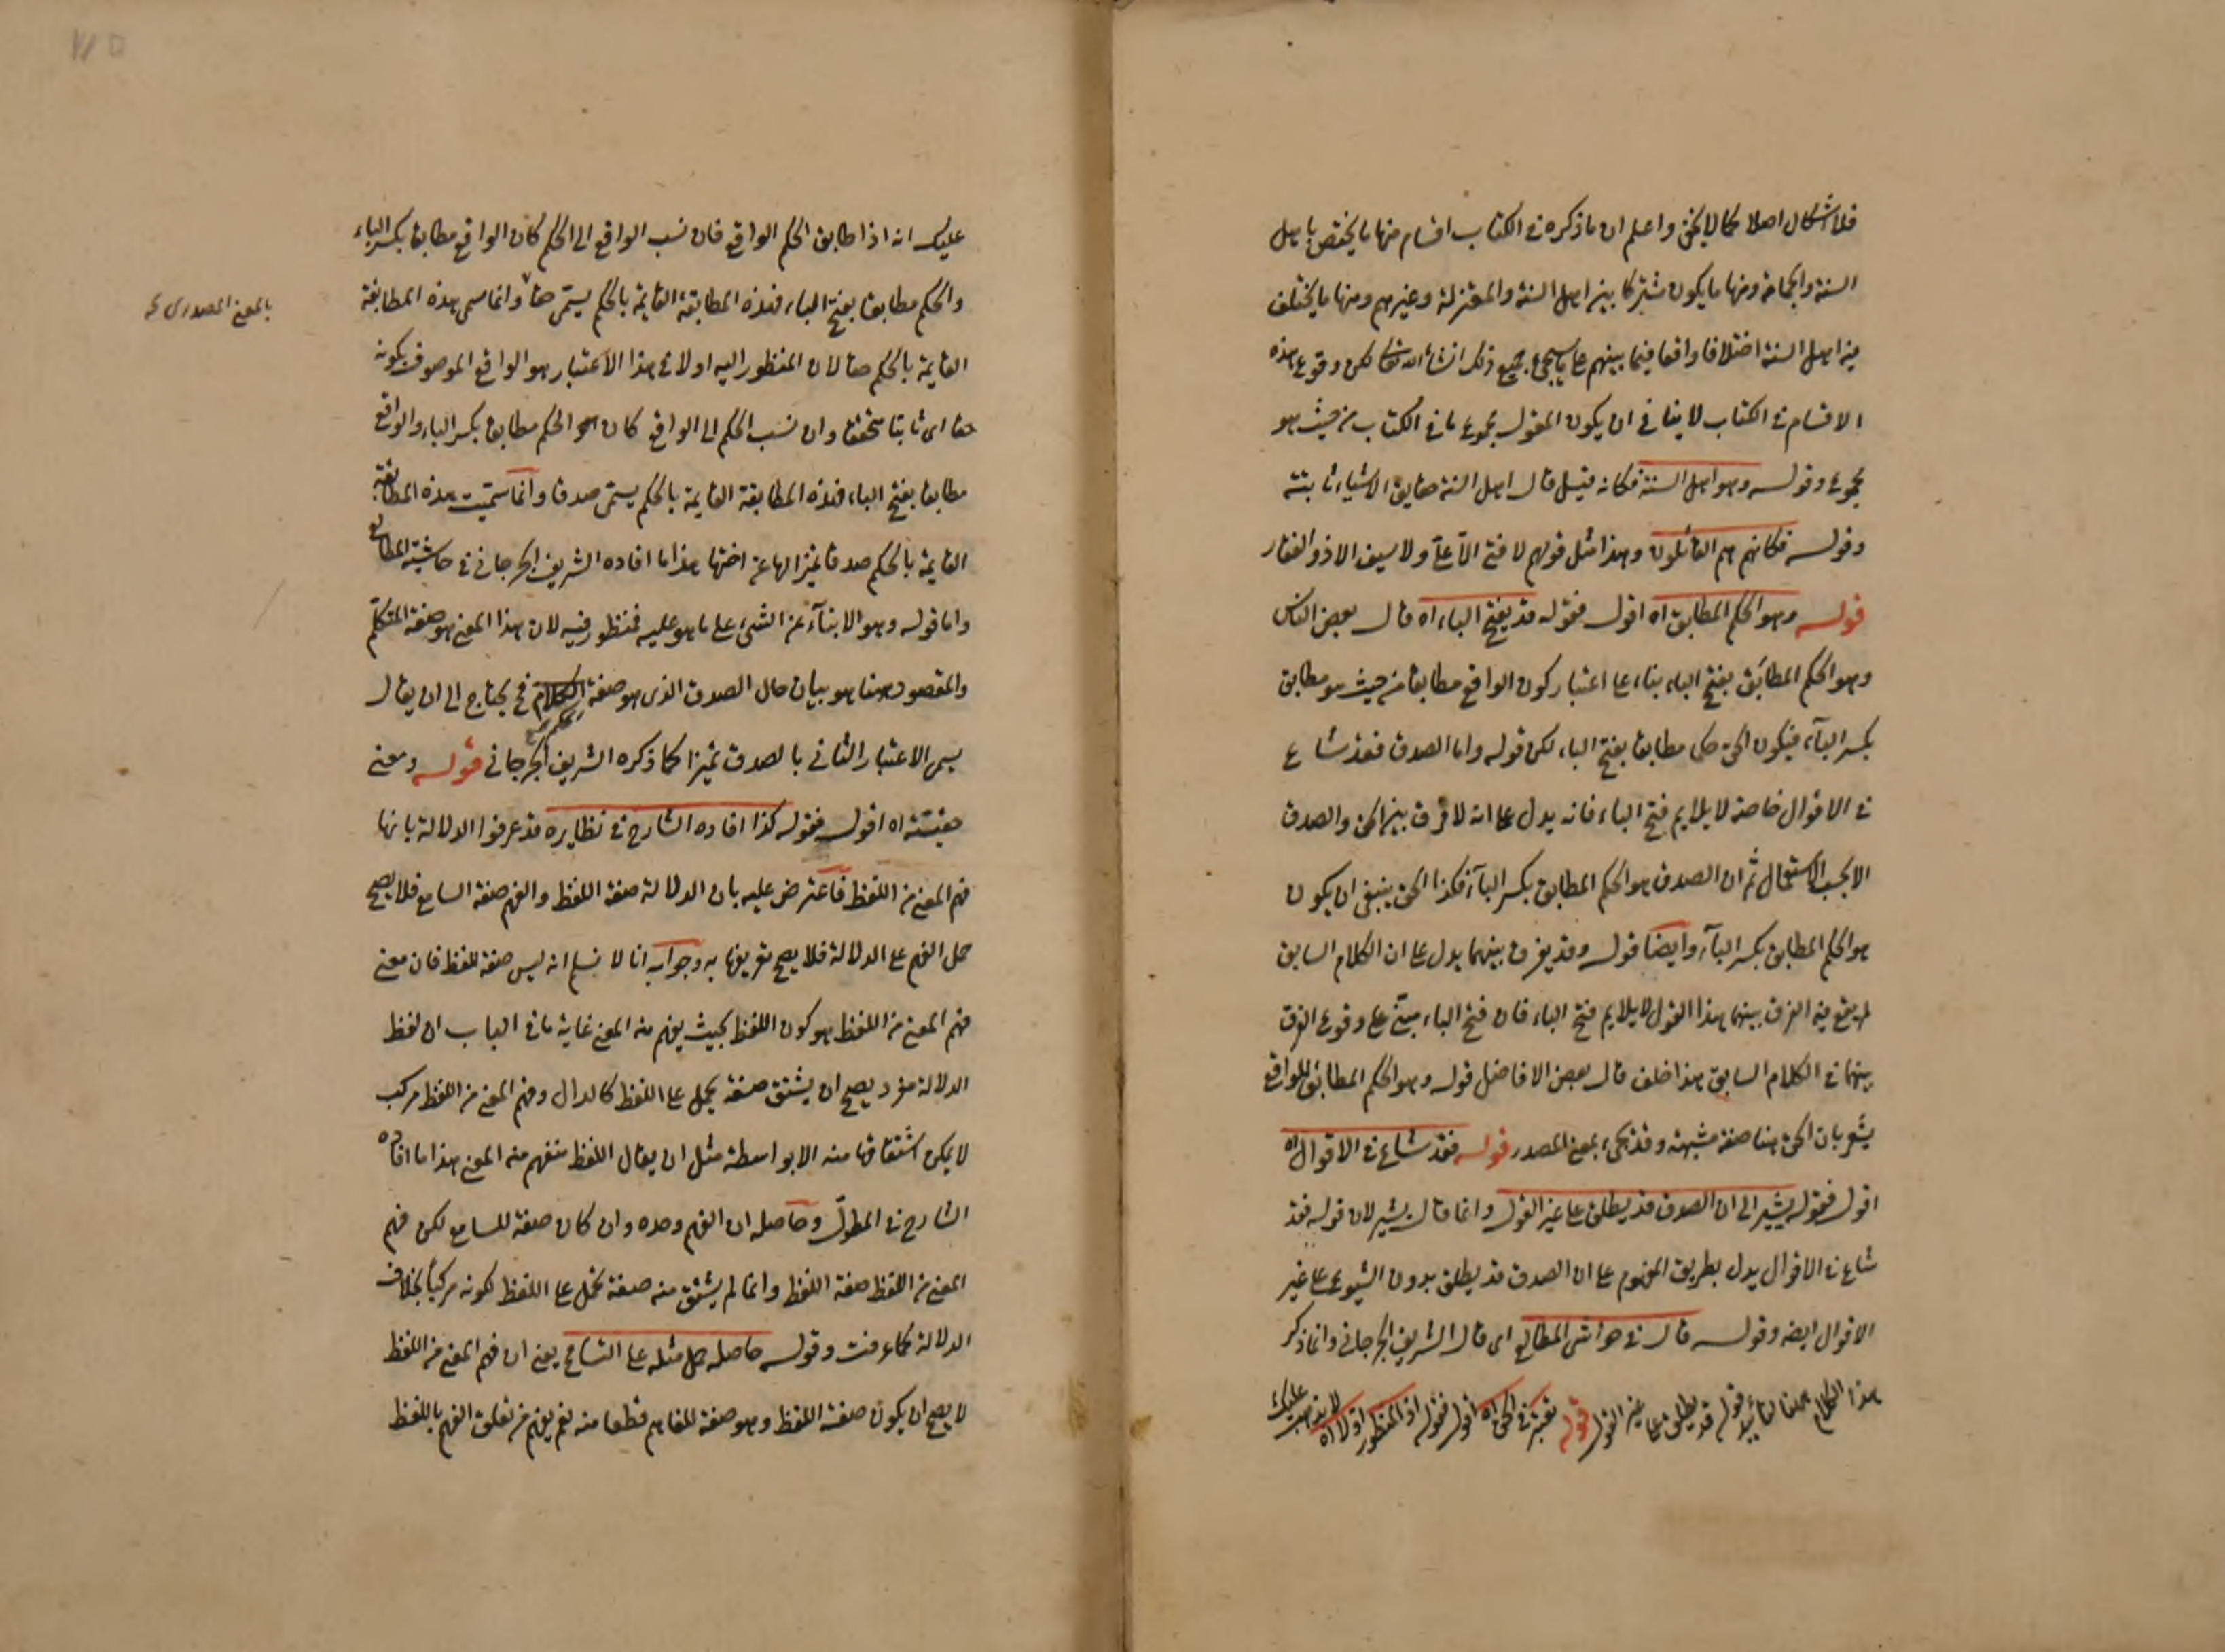 فلا اشكال اصلا كما لا يخفى واعلم ان ما ذكره فى الكتاب اقسام منها ما يختص باهل
السنة والجماعة ومنها ما يكون مشتركا بين اهل السنة والمعتزلة وغيرهم ومنها ما يختلف
فيه اهل السنة اختلافا واقعا فيما بينهم على ما سيجئ جميع ذلك انشاء الله تعالى لكن وقوع هذه
الاقسام فى الكتاب لا ينافى ان يكون المقول مجموع ما فى الكتاب من حيث هو
مجموع وقوله وهو اهل السنة فكانه قيل قال اهل السنة حقايق الاشياء ثابتة
وقوله فكانهم هم القائلون وهذا مثل قولهم لا فتى الا على ولا سيف الا ذو الفقار
قوله وهو الحكم المطابق اه اقول فقوله قد يفتح الباء اه قال بعض الناس
وهو الحكم المطابَق بفتح الباء بناء على اعتبار كون الواقع مطابقا من حيث هو مطابق
بكسر الباء فيكون الحق حكما مطابقا بفتح الباء لكن قوله واما الصدق فقد شاع
فى الاقوال خاصة لا يلايم فتح الباء فانه يدل على انه لا فرق بين الحق والصدق
الا بحسب الاستعمال ثم ان الصدق هو الحكم المطابق بكسر الباء فكذا الحق ينبغى ان يكون
هو الحكم المطابق بكسر الباء وايضا قوله وقد يفرق بينهما يدل على ان الكلام السابق
لم يقع فيه الفرق بينهما هذا القول لا يلايم فتح الباء فان فتح الباء مبنى على وقوع الفرق
بينهما فى الكلام السابق هذا خلف قال بعض الافاضل قوله وهو الحكم المطابق للواقع
يشعر بان الحق هنا صفة مشبهة وقد يجئ بمعنى المصدر قوله فقد شاع فى الاقوال اه
اقول فقوله يشير الى ان الصدق قد يطلق على غير القول وانما قال يشير لان قوله فقد
شاع فى الاقوال يدل بطريق المفهوم على ان الصدق قد يطلق بدون الشيوع على غير
الاقوال ايضه وقوله قال فى حواشى المطالع اى قال الشريف الجرجانى وانما ذكر
هذا الكلام ههنا تأييد قوله قد يطلق على غير القول قوله يعتبر فى الحق اه اقول فقوله اذ المنظور اولا اه لا يذهب عليك
عليك انه اذا طابق الحكم الواقع فان نسب الواقع الى الحكم كان الواقع مطابقا بكسر الباء
والحكم مطابقا بفتح الباء فهذه المطابقة القايمة بالحكم يسمى حقا وانما سمى هذه المطابقة
بالمعنى المصدرى
القايمة بالحكم حقا لان المنظور اليه اولا فى هذا الاعتبار هو الواقع الموصوف بكونه
حقا اى ثابتا متحققا وان نسب الحكم الى الواقع كان الحكم مطابقا بكسر الباء والواقع
مطابقا بفتح الباء فهذه المطابقة القايمة بالحكم يسمى صدقا وانما سميت هذه المطابقة
القايمة بالحكم صدقا تميزا لها عن اختها هذا ما افاده الشريف الجرجانى فى حاشية المطالع
واما قوله وهو الانباء عن الشئ على ما هو عليه فمنظور فيه لان هذا المعنى هو صفة المتكلم
والمقصود ههنا هو بيان حال الصدق الذى هو صفة فح يحتاج الى ان يقال
يسمى الاعتبار الثانى بالصدق تميزا كما ذكره الشريف الجرجانى قوله ومعنى
حقيته اه اقول فقوله كذا افاده الشارح فى نظايره قد عرفوا الدلالة بانها
فهم المعنى من اللفظ فاعترض عليه بان الدلالة صفة اللفظ والفهم صفة السامع فلا يصح
حمل الفهم على الدلالة فلا يصح تعريفها به وجوابه انا لا نسلم انه ليس صفة للفظ فان معنى
فهم المعنى من اللفظ هو كون اللفظ بحيث يفهم منه المعنى غاية ما فى الباب ان لفظ
الدلالة مفرد يصح ان يشتق صفة يحمل على اللفظ كالدال وفهم المعنى من اللفظ مركب
لا يمكن اشتقاقها منه الا بواسطة مثل ان يقال اللفظ منفهم منه المعنى هذا ما افاده
الشارح فى المطول وحاصله ان الفهم وحده وان كان صفة للسامع لكن فهم
المعنى من اللفظ صفة اللفظ وانما لم يشتق منه صفة تحمل على اللفظ لكونه مركبا بخلاف
الدلالة كما عرفت وقوله حاصله حمل مثله على التسامح يعنى ان فهم المعنى من اللفظ
لا يصح ان يكون صفة اللفظ وهو صفة للفاهم قطعا منه نعم يفهم من تعلق الفهم باللفظ